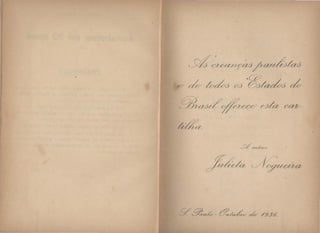 As creanças paulistas
e de todos os Estados do
Brasil offereço esta car-
tilha.
A autora
Julieta Nogueira
S. Paulo - Outubro de 1936.